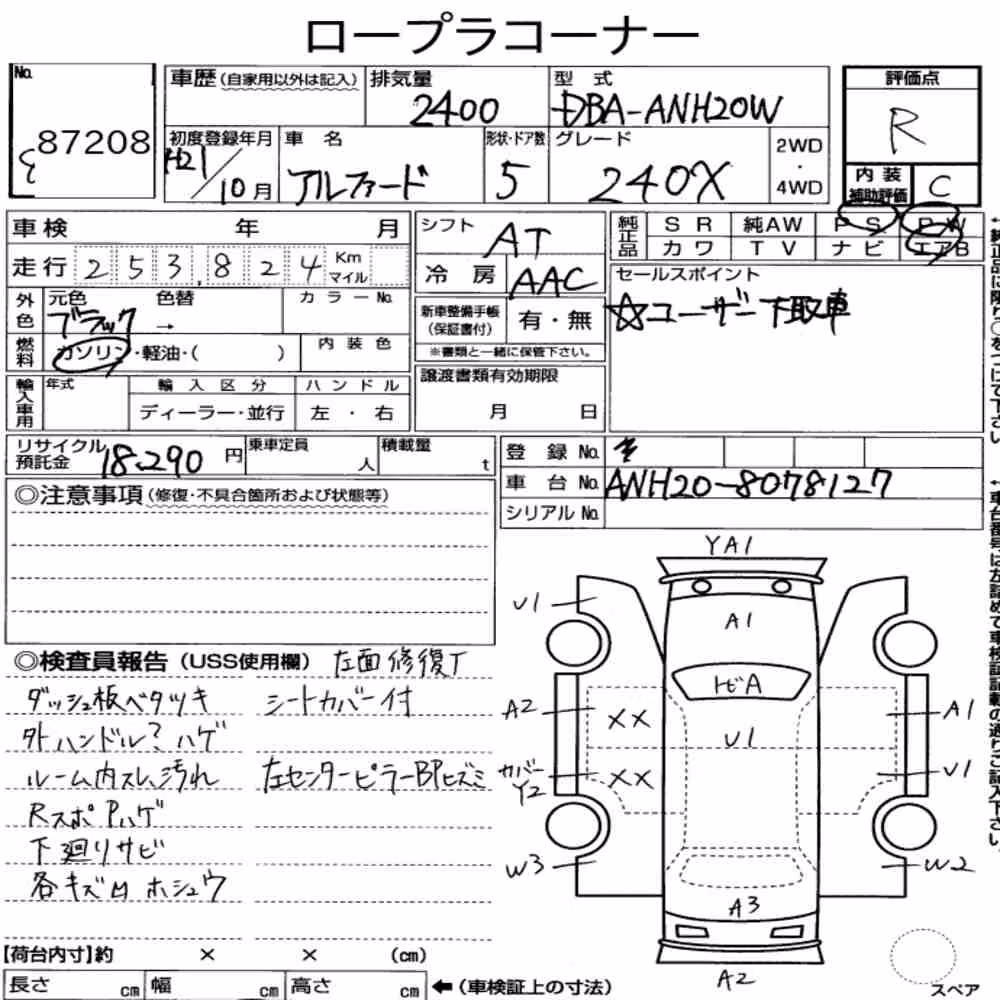 ロープラコーナー
No. 87208
車歴(自家用以外は記入)
排気量 2400
型式 DBA-ANH20W
評価点 R
初度登録年月 H21/10月
車名 アルファード
形状・ドア数 5
グレード 240X
2WD・4WD
内装補助評価 C
車検 年 月
シフト AT
純正品 SR 純AW PS PW
カワ TV ナビ エアB
走行 253,824 Km マイル
冷房 AAC
セールスポイント
☆ユーザー下取車
外色 元色 ブラック → 色替 カラーNo.
新車整備手帳(保証書付) 有・無
※書類と一緒に保管下さい。
燃料 ガソリン・軽油・( ) 内装色
譲渡書類有効期限 月 日
輸入車用 年式 輸入区分 ハンドル
ディーラー・並行 左・右
リサイクル預託金 18,290円
乗車定員 人
積載量 t
登録No.
車台No. ANH20-8078127
シリアルNo.
◎注意事項(修復・不具合箇所および状態等)
◎検査員報告(USS使用欄) 左面修復了
ダッシュ板ベタツキ シートカバー付
外ハンドル?ハゲ
ルーム内スレ、汚れ 左センターピラーBPヒズミ
RスポPハゲ
下廻りサビ
各キズ凹ホシュウ
YA1
U1
A1
トビA
A2 XX A1
U1
カバーY2 XX U1
W3 W2
A3
A2
スペア
【荷台内寸】約 × × (cm)
長さ cm 幅 cm 高さ cm ←(車検証上の寸法)